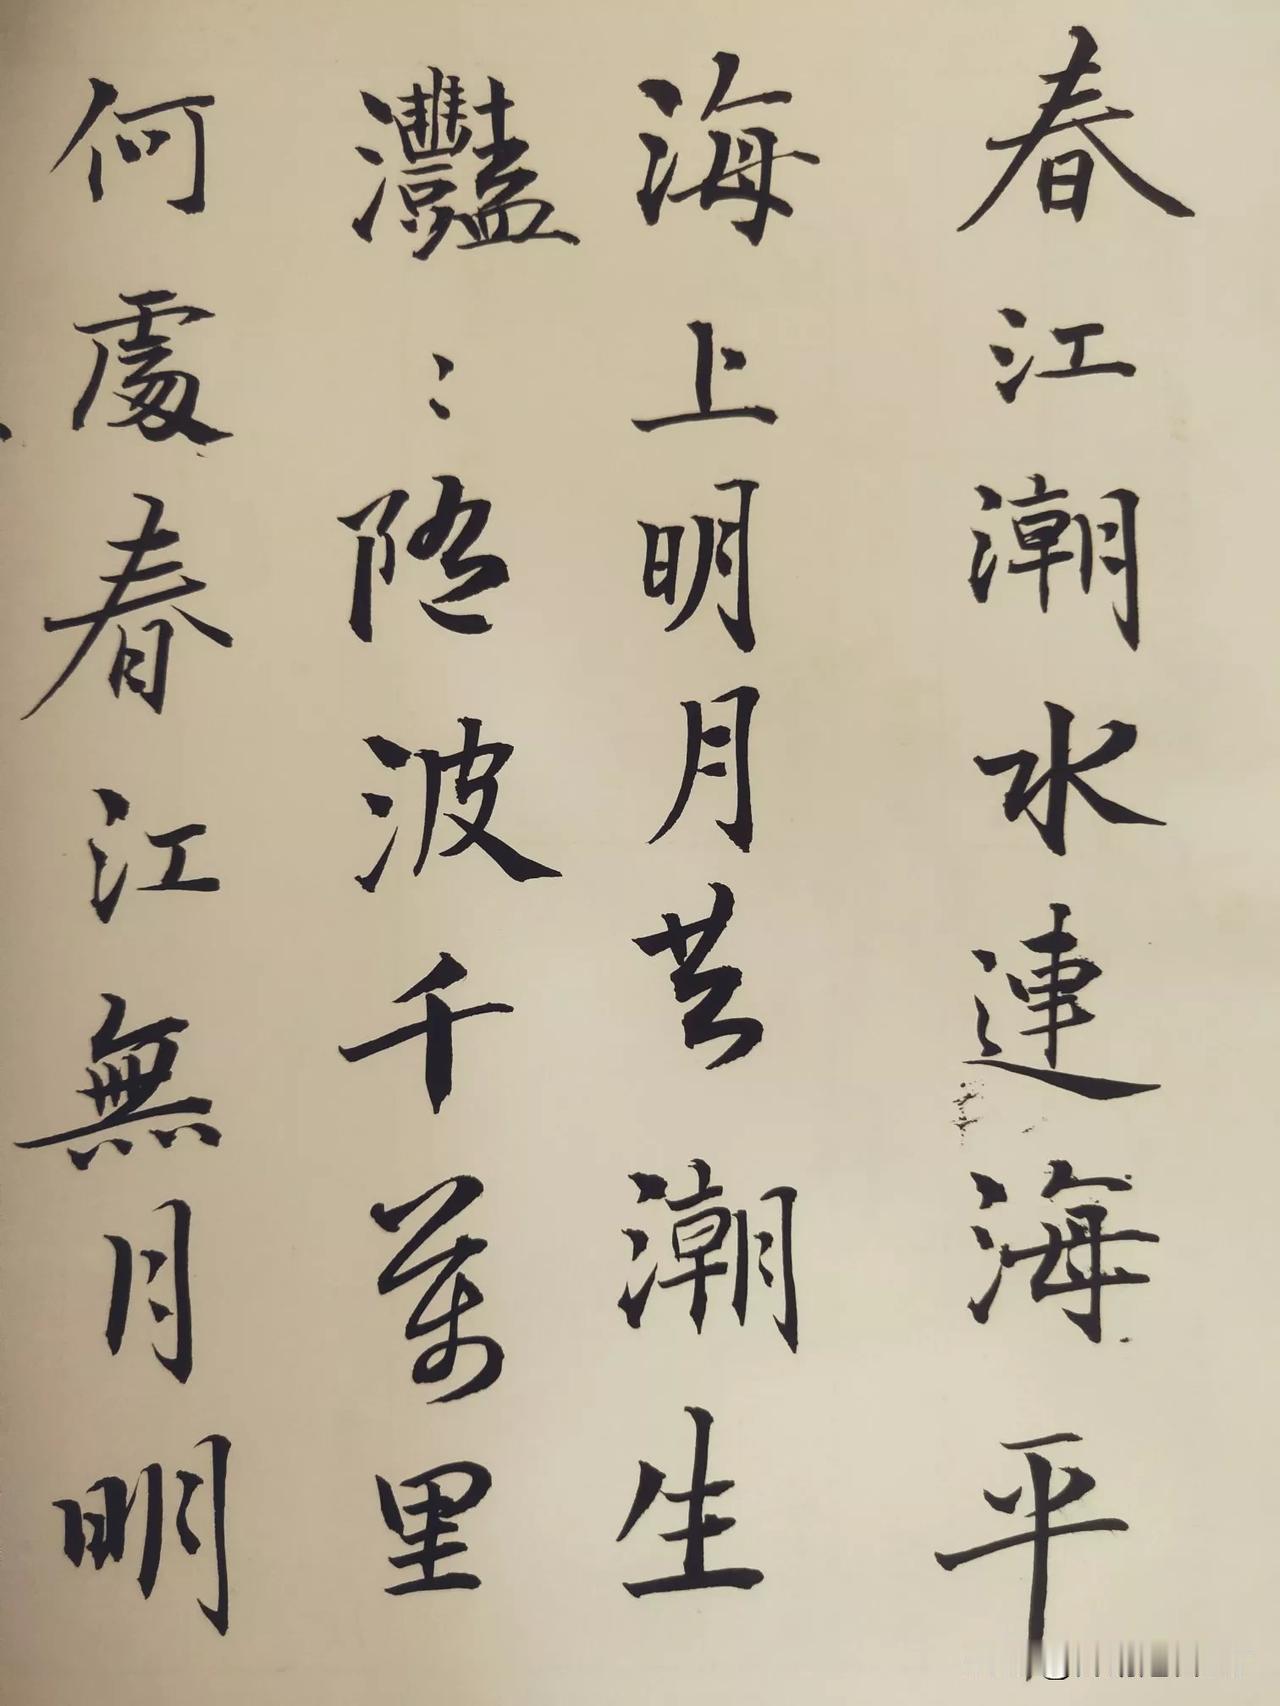 春江潮水連海平
海上明月共潮生
灩〻随波千萬里
何處春江無月明